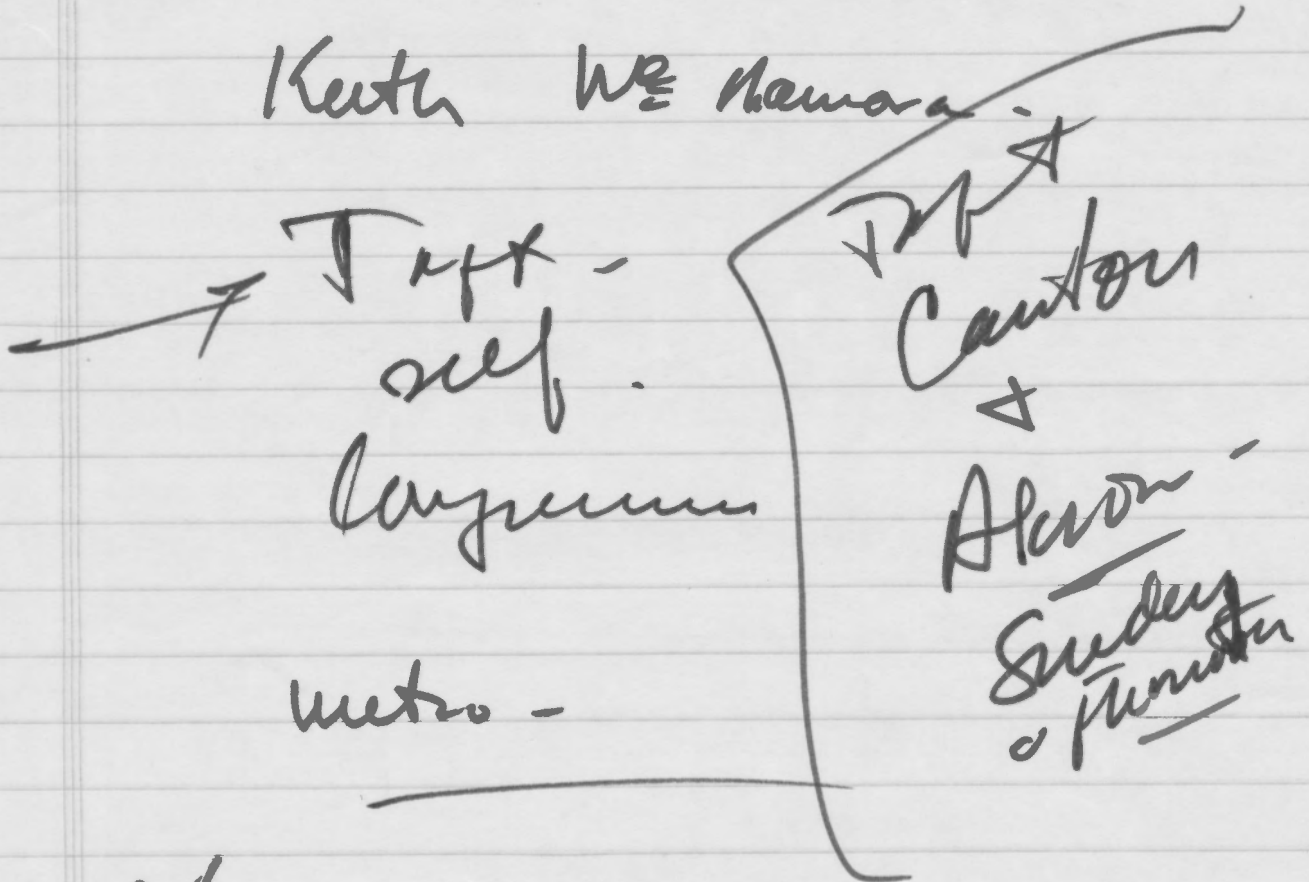 Keith McNamara.
Taft -
self.
Congressman
metro -
Taft
Canton
&
Akron -
Sunday
afternoon